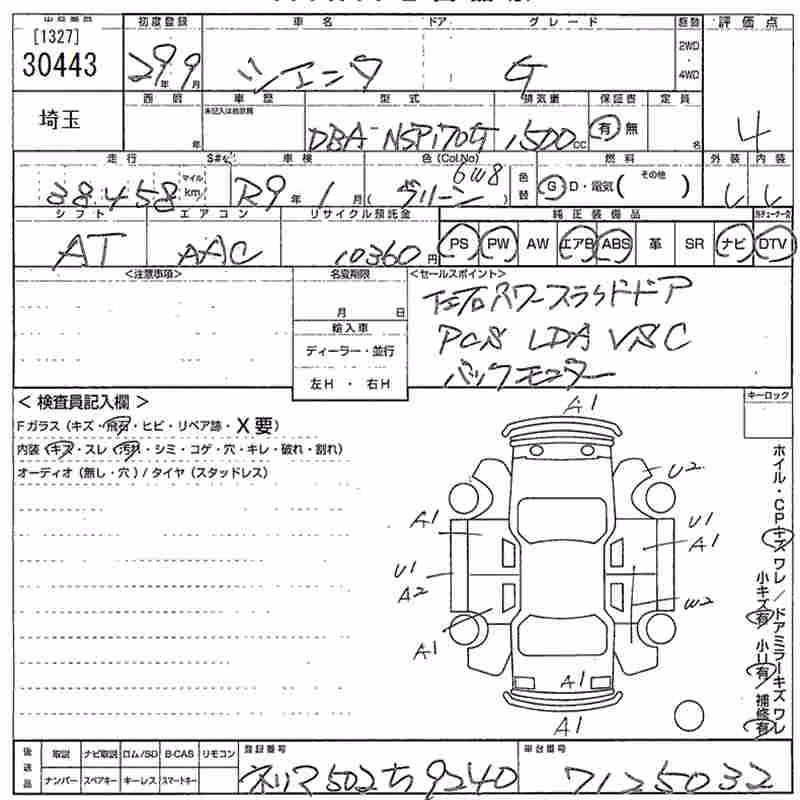 [1327]
30443
埼玉
初度登録 車名 ドア グレード 駆動 評価点
29年9月 シエンタ G 2WD・4WD
西暦 車歴 型式 排気量 保証書 定員
年 未記入は自家用 DBA-NSP170G 1500cc 有 無 名 4
走行 S#・ 車検 色(Col.No) 燃料 外装 内装
38,458 マイル km R9年1月 (グリーン 6W8) 色替 G D・電気( その他 )
シフト エアコン リサイクル預託金 純正装備品
AT AAC 10360円 PS PW AW エアB ABS 革 SR ナビ DTV
<注意事項> 名変期限 <セールスポイント>
月 日
輸入車
ディーラー・並行
左H ・ 右H
パワースライドドア
PCS LDA VSC
バックモニター
キーロック
< 検査員記入欄 >
Fガラス(キズ・飛石・ヒビ・リペア跡・X要)
内装(キズ・スレ・汚れ・シミ・コゲ・穴・キレ・破れ・割れ)
オーディオ(無し・穴)/タイヤ(スタッドレス)
A1
U2
A1 U1
A1
U1
A2 W2
A1
A1
A1
ホイル・CPキズ ワレ/ドアミラーキズ ワレ
小キズ有 小U有 補修有
後送品 取説 ナビ取説 ロム/SD B-CAS リモコン 登録番号 車台番号
ナンバー スペアキー キーレス スマートキー ネリマ502ち9240 7125032